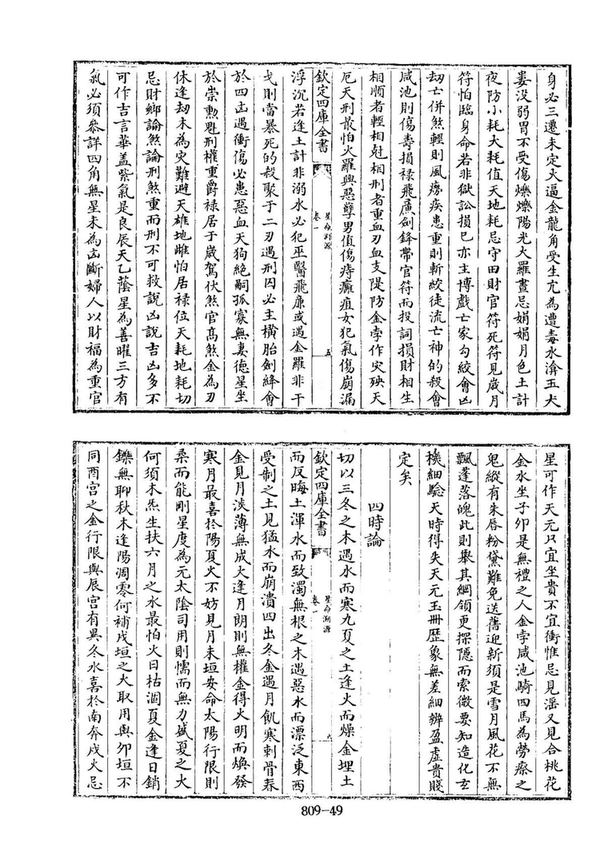 身必三遷未定火逼金龍角受生亢為遭毒水濟玉犬
婁没弱胃不受傷爍爍陽光大羅晝忌娟娟月色土計
夜防小耗大耗值天地耗忌守田財官符死符見歲月
符怕臨身命若非獄訟損已亦主博戲亡家勾絞會凶
劫亡併煞輕則風癆疾患重則斬絞徒流亡神的殺會
咸池則傷壽損禄飛廉劍鋒帶官符而投詞損財相生
相順者輕相尅相刑者重血刃血支隄防金孛作灾殃天
厄天刑最怕火羅興惡孽男值傷痔癲疽女犯氣傷崩漏
欽定四庫全書
星命溯源
卷一
五
浮沉若逢土計非溺水必犯巫醫飛廉或遇金羅非干
戈則當暴死的殺聚于二刃遇刑囚必主横胎劍鋒會
於四凶遇衝傷必患惡血天狗絶嗣孤寡無妻德星坐
於崇勲魁刑權重爵禄居于歲駕伏煞官高煞金為刃
休逢劫未為灾難避天雄地雌怕居禄位天耗地耗切
忌財鄉論煞論刑煞重而刑不可救說凶說吉凶多不
可作吉言華盖紫氣是良辰天乙蔭星為善曜三方有
氣必須參詳四角無星未為凶斷婦人以財福為重官
星可作天元只宜坐貴不宜衝惟忌見滛又見合桃花
金水坐子卯是無禮之人金孛咸池騎四馬為勞療之
鬼縱有朱唇粉黛難免送舊迎新須是雪月風花不無
飄蓬落魄此則舉其綱領更探隱而索微要知造化玄
機細騐天時得失天元玉冊歴象無差細辨盈虚貴賤
定矣
四時論
切以三冬之木遇水而寒九夏之土逢火而燥金埋土
欽定四庫全書
星命溯源
卷一
六
而反晦土渾水而致濁無根之木遇惡水而漂泛東西
受制之土見猛水而崩潰四出冬金遇月飢寒刺骨春
金見月淡薄無成火逢月朗則無權金得火明而煥發
寒月最喜於陽夏火不妨見月未垣安命太陽行限則
柔而能剛星度為元太陰司用則懦而無力盛夏之火
何須木炁生扶六月之水最怕火日枯涸夏金逢日銷
鑠無聊秋木逢陽凋零何補戌垣之火取用與卯垣不
同酉宫之金行限與辰宫有異冬水喜於南奔戌火忌
809-49